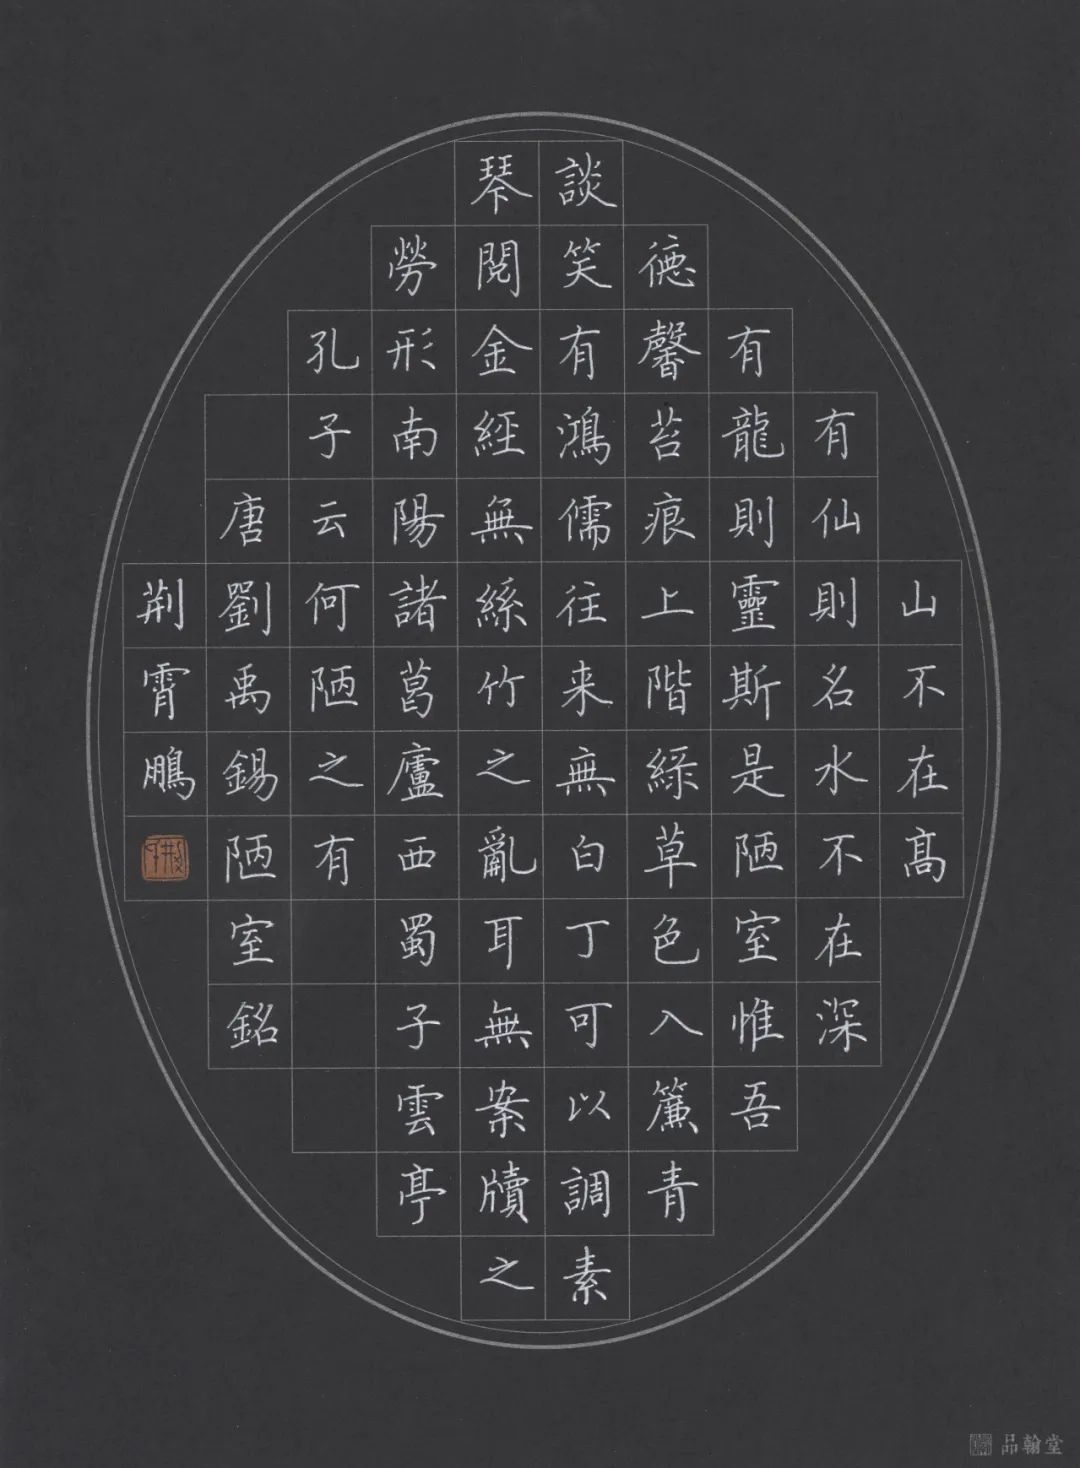 山不在髙
有仙則名水不在深
有龍則靈斯是陋室惟吾
德馨苔痕上階綠草色入簾青
談笑有鴻儒往来無白丁可以調素
琴閱金經無絲竹之亂耳無案牘之
勞形南陽諸葛廬西蜀子雲亭
孔子云何陋之有
唐劉禹錫陋室銘
荆霄鵬
品翰堂